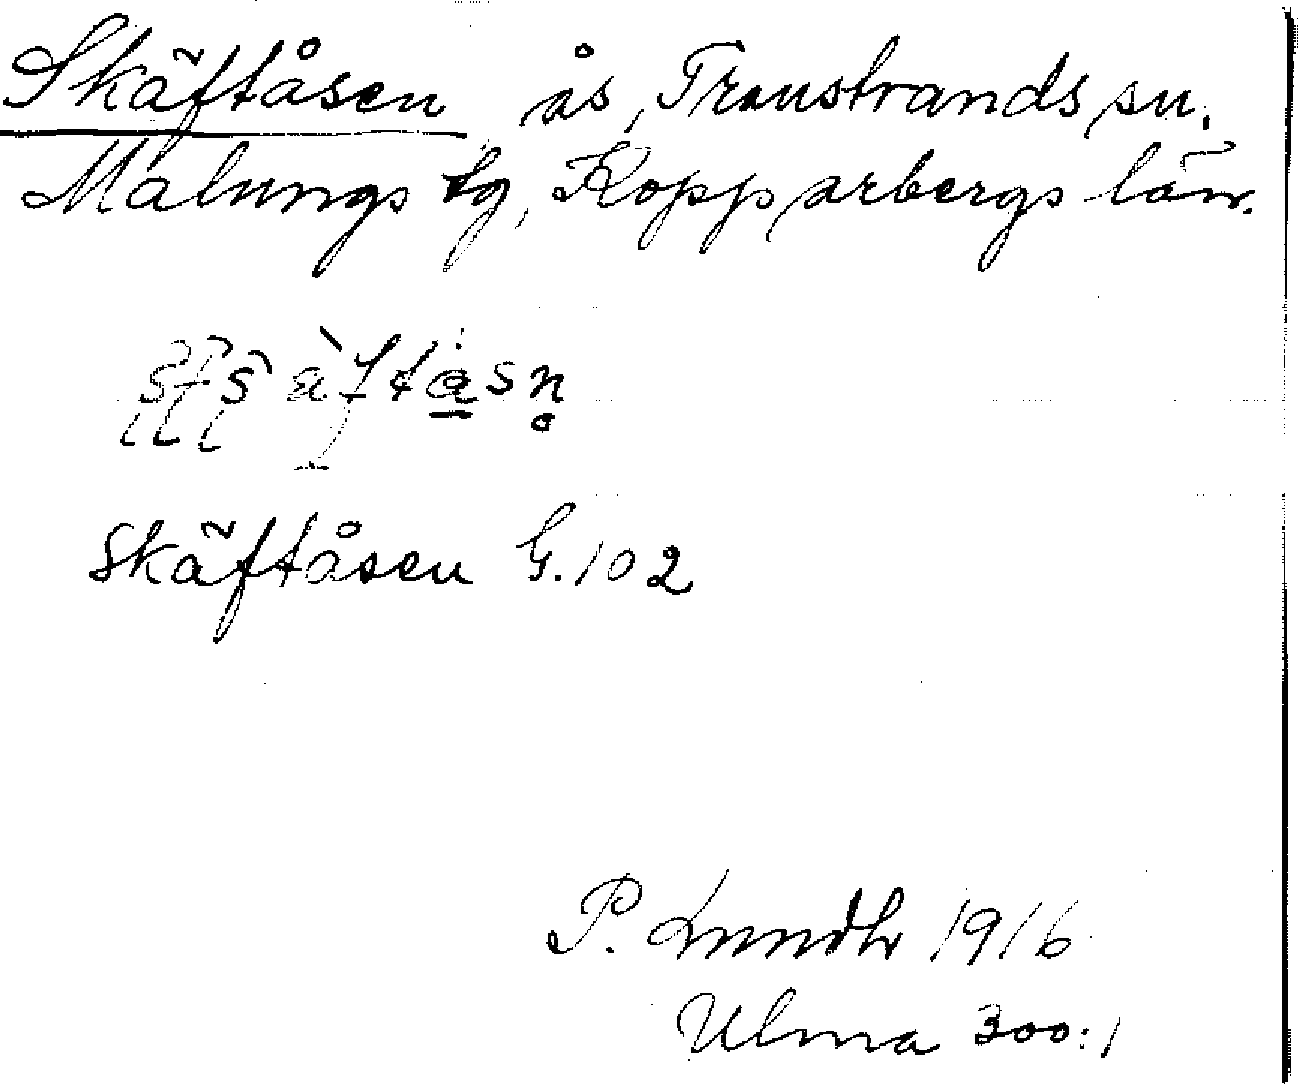 Skäftåsen, ås, Transtrands sn.
Malungs tg, Kopparbergs län.
Skäftåsen G. 102
P. Lundh 1916
Ulma 300:1